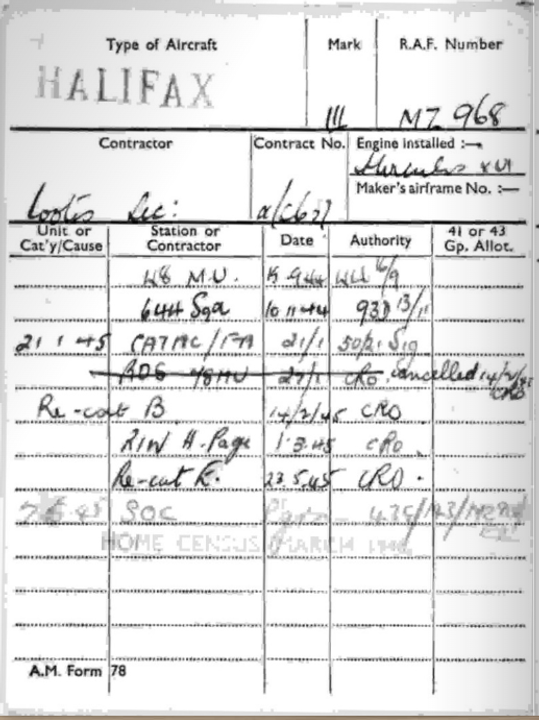 Type of Aircraft Mark R.A.F. Number
HALIFAX
III MZ 968
Contractor Contract No. Engine installed :—
Hercules XVI
Maker's airframe No. :—
Lootis Sec:
Unit or Cat'y/Cause Station or Contractor Date Authority 41 or 43 Gp. Allot.
48 M.U.
644 Sqn 10 11 44 93D 13/11
21 1 45 CAT AC/FA 21/1 50/21 Sig
48MU 27/1 CRO. Cancelled 14/2/45 CRO
Re-cat B 14/2/45 CRO
RIW H. Page 1.3.45 CRO
Re-cat E. 23.5.45 CRO.
SOC
HOME CENSUS MARCH 1946
A.M. Form 78